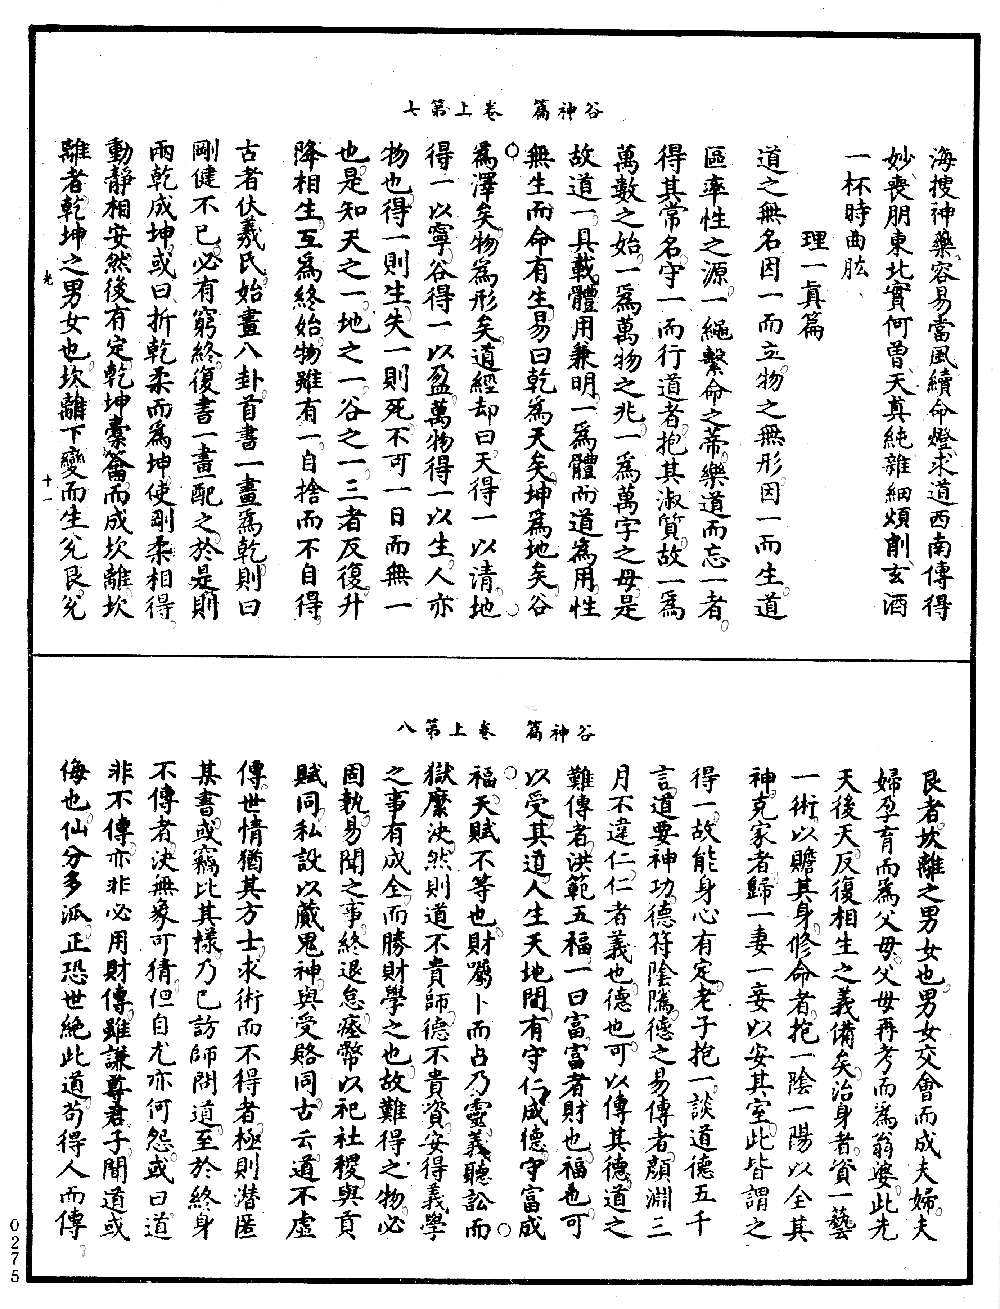 谷神篇　卷上第七
海搜神藥容易當風續命燈求道西南傳得
妙喪朋東北實何曾天真純雜細煩削玄酒
一杯時曲肱
理一真篇
道之無名因一而立物之無形因一而生道
區率性之源一繩繫命之蒂樂道而忘一者
得其常名守一而行道者抱其淑質故一為
萬數之始一為萬物之兆一為萬字之母是
故道一具載體用兼明一為體而道為用性
無生而命有生易曰乾為天矣坤為地矣谷
為澤矣物為形矣道經却曰天得一以清地
得一以寧谷得一以盈萬物得一以生人亦
物也得一則生失一則死不可一日而無一
也是知天之一地之一谷之一三者反復升
降相生互為終始物雖有一自捨而不自得
古者伏羲氏始畫八卦首書一畫為乾則曰
剛健不已必有窮終復書一畫配之於是則
兩乾成坤或曰折乾柔而為坤使剛柔相得
動靜相安然後有定乾坤橐籥而成坎離坎
離者乾坤之男女也坎離下變而生兌艮兌
光　十一
谷神篇　卷上第八
艮者坎離之男女也男女交會而成夫婦夫
婦孕育而為父母父母再考而為翁婆此先
天後天反復相生之義備矣治身者資一藝
一術以贍其身修命者抱一陰一陽以全其
神克家者歸一妻一妾以安其室此皆謂之
得一故能身心有定老子抱一談道德五千
言道要神功德符陰騭德之易傳者顏淵三
月不違仁仁者義也德也可以傳其德道之
難傳者洪範五福一曰富富者財也福也可
以受其道人生天地間有守仁成德守富成
福天賦不等也財賜卜而占乃靈義聽訟而
獄麼決然則道不貴師德不貴資安得義學
之事有成全而勝財學之也故難得之物必
固執易聞之事終退怠瘞幣以祀社稷與貢
賦同私設以蔵鬼神與受賂同古云道不虛
傳世情猶其方士求術而不得者極則潛匿
某書或竊比其樣乃已訪師問道至於終身
不傳者決無象可猜但自尤亦何怨或曰道
非不傳亦非必用財傳雖謙尊君子聞道或
侮也仙分多派正恐世絕此道苟得人而傳
0275